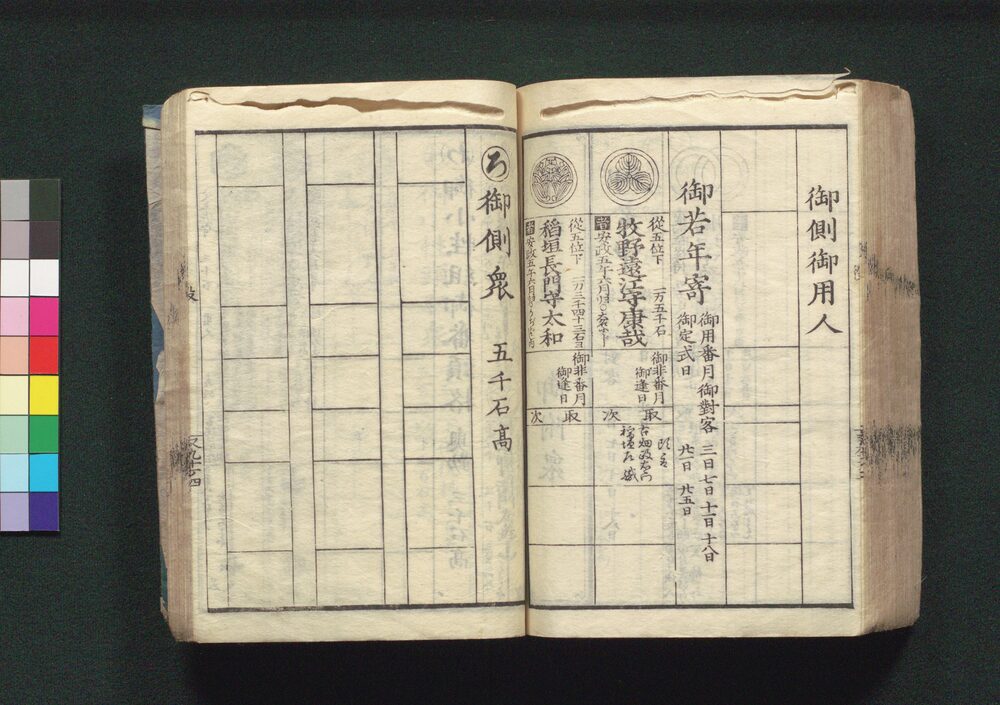 御側御用人
御若年寄
御用番月御對客 三日七日十一日十八日
御定式日 廿一日 廿五日
從五位下 一万五千石
牧野遠江守康哉
安政五午六月
御非番月
御逢日
取次
從五位下 一万三千四十三石ヨ
稲垣長門守太和
安政五午六月
御非番月
御逢日
取次
稲垣
ろ御側衆 五千石高